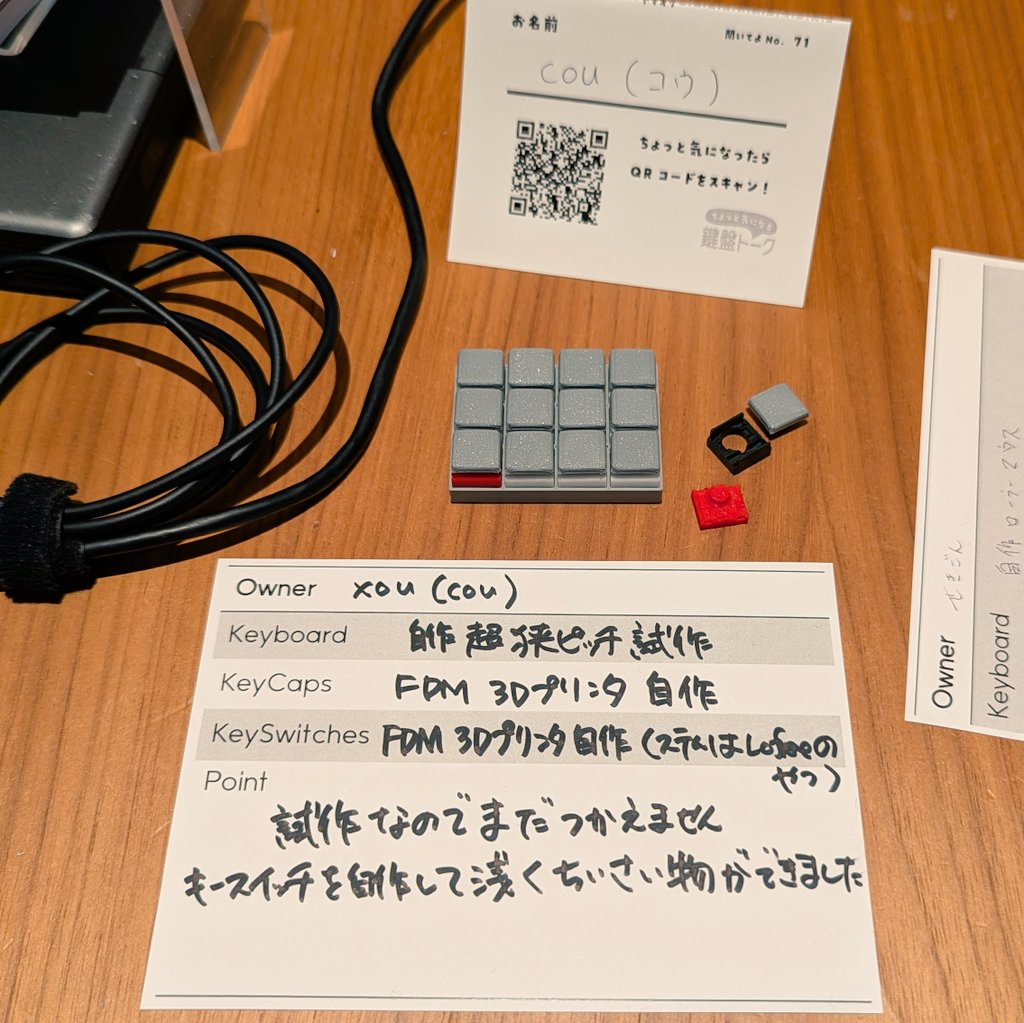 お名前
聞いてよNo. 71
cou (コウ)
ちょっと気になったら
QRコードをスキャン！
ちょっと気になる
鍵盤トーク
Owner xou (cou)
Keyboard 自作 超狭ピッチ 試作
KeyCaps FDM 3Dプリンタ 自作
KeySwitches FDM 3Dプリンタ自作 (ステムはLofreeの
やつ)
Point
試作なのでまだつかえません
キースイッチを自作して浅くちいさい物ができました
Owner
Keyboard 自作